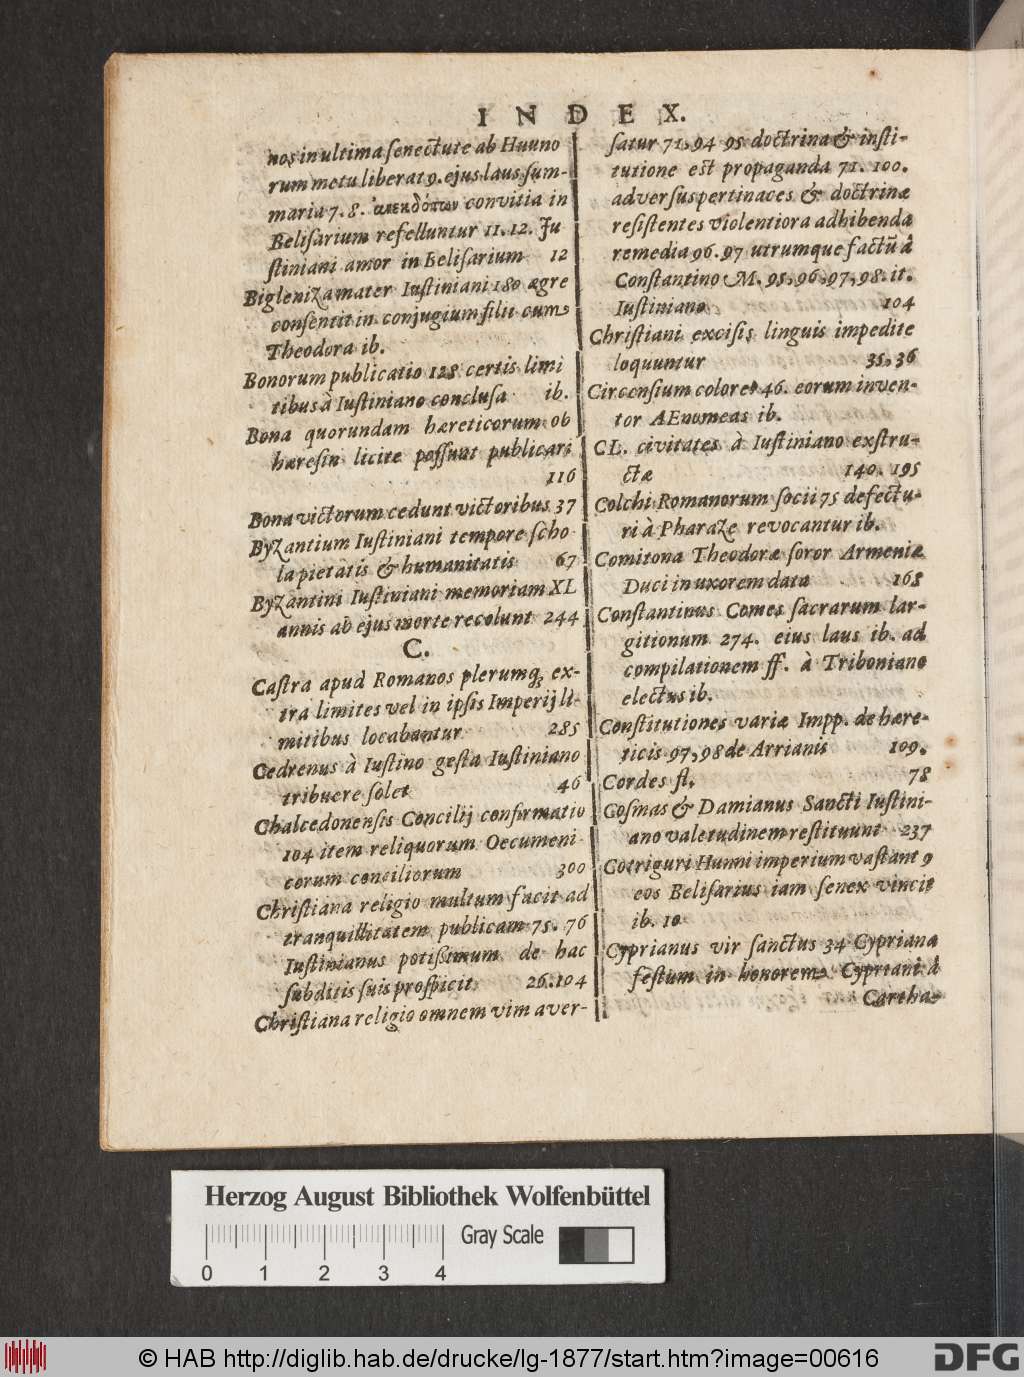 INDEX.
nos in ultima senectute ab Hunno
rum metu liberat 9. ejus laus sum-
maria 7. 8. ἀνεκδότων convitia in
Belisarium refelluntur 11. 12. Ju
stiniani amor in Belisarium 12
Bigleniza mater Iustiniani 180 ægre
consentit in conjugium filii cum
Theodora ib.
Bonorum publicatio 128 certis limi
tibus à Iustiniano conclusa ib.
Bona quorundam hæreticorum ob
hæresin licite possunt publicari
116
Bona victorum cedunt victoribus 37
Byzantium Iustiniani tempore scho
la pietatis & humanitatis 67
Byzantini Iustiniani memoriam XL
annis ab ejus morte recolunt 244
C.
Castra apud Romanos plerumq; ex-
tra limites vel in ipsis Imperij li-
mitibus locabantur 285
Cedrenus à Iustino gesta Iustiniano
tribuere solet 46
Chalcedonensis Concilij confirmatio
104 item reliquorum Oecumeni
corum conciliorum 300
Christiana religio multum facit ad
tranquillitatem publicam 75. 76
Iustinianus potißimum de hac
subditis suis prospicit 26. 104
Christiana religio omnem vim aver-
satur 71, 94 95 doctrina & insti-
tutione est propaganda 71. 100.
adversus pertinaces & doctrinæ
resistentes violentiora adhibenda
remedia 96. 97 utrumque factũ â
Constantino M. 95, 96, 97, 98. it.
Iustiniano 104
Christiani excisis linguis impedite
loquuntur 35, 36
Circensium colores 46. eorum inven-
tor AEnomeas ib.
CL. civitates à Iustiniano exstru-
ctæ 140. 195
Colchi Romanorum socii 75 defectu-
ri à Pharaze revocantur ib.
Comitona Theodoræ soror Armeniæ
Duci in uxorem data 168
Constantinus Comes sacrarum lar-
gitionum 274. eius laus ib. ad
compilationem ff. à Triboniano
electus ib.
Constitutiones variæ Impp. de hære-
ticis 97, 98 de Arrianis 109.
Cordes fl. 78
Cosmas & Damianus Sancti Iustini-
ano valetudinem restituunt 237
Cotriguri Hunni imperium vastant 9
eos Belisarius iam senex vincit
ib. 10
Cyprianus vir sanctus 34 Cypriana
festum in honorem Cypriani â
Cartha-
Herzog August Bibliothek Wolfenbüttel
Gray Scale
0 1 2 3 4
© HAB http://diglib.hab.de/drucke/lg-1877/start.htm?image=00616
DFG